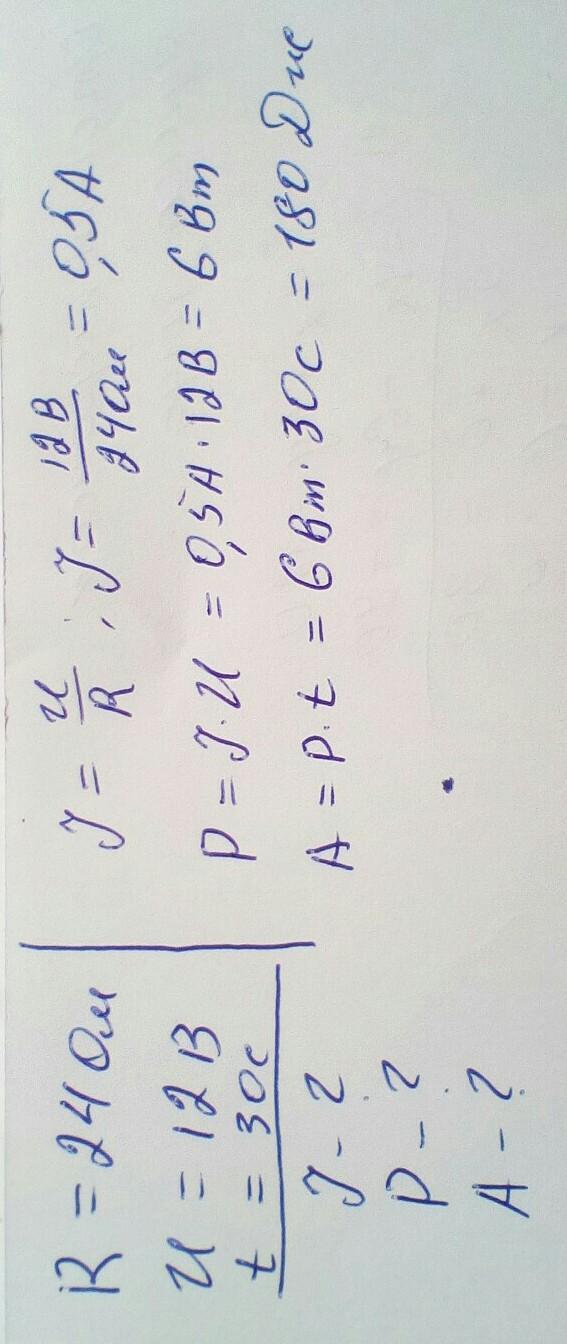 R = 24 Ом
U = 12 В
t = 30 с
J - ?
P - ?
A - ?
J = U/R ; J = 12В/24Ом = 0,5 А
P = J·U = 0,5А·12В = 6 Вт
A = P·t = 6 Вт·30с = 180 Дж